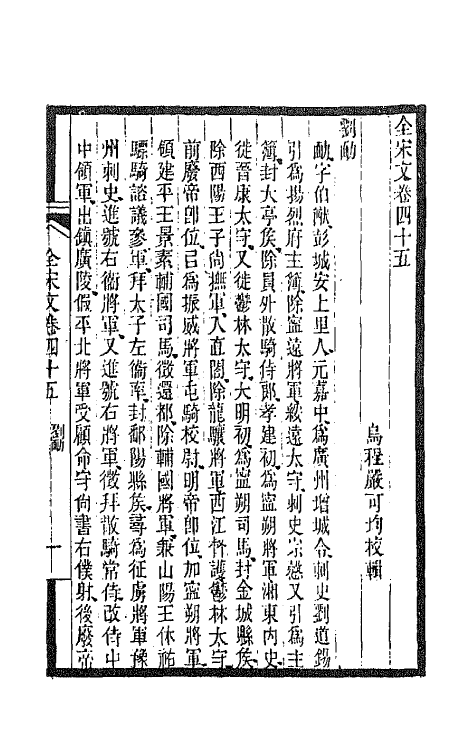 全宋文卷四十五
烏程嚴可均校輯
劉勔
勔字伯猷彭城安上里人元嘉中爲廣州增城令刺史劉道錫
引爲揚烈府主簿除寧遠將軍綏遠太守刺史宗慤又引爲主
簿封大亭矦除員外散騎侍郎孝建初爲寧朔將軍湘東內史
徙晉康太守又徙鬱林太守大明初爲寧朔司馬封金城縣矦
除西陽王子尚撫軍入直閤除龍驤將軍西江督護鬱林太守
前廢帝卽位㠯爲振威將軍屯騎校尉明帝卽位加寧朔將軍
領建平王景素輔國司馬徵還都除輔國將軍兼山陽王休祐
驃騎諮議參軍拜太子左衞率封鄱陽縣矦尋爲征虜將軍豫
州刺史進號右衞將軍又進號右將軍徵拜散騎常侍改侍中
中領軍出鎮廣陵假平北將軍受顧命守尚書右僕射後廢帝
全宋文卷四十五 劉勔 一